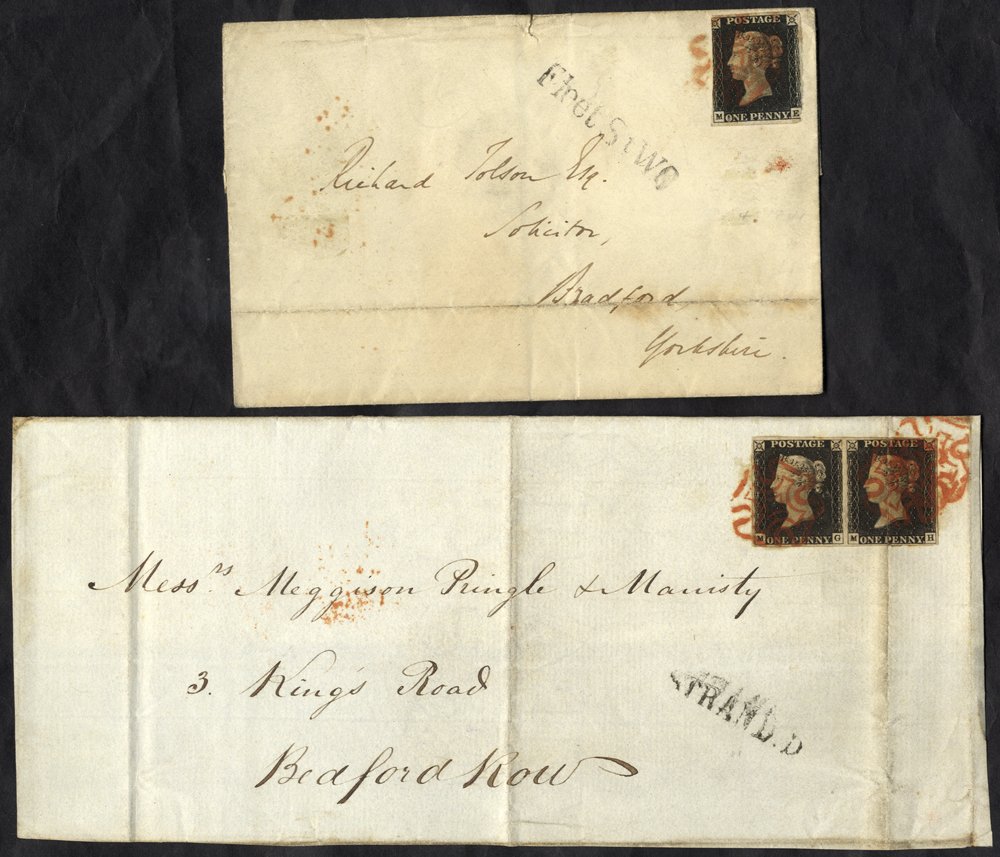 POSTAGE
M ONE PENNY E
Fleet St WO
Richard Tolson Esq.
Solicitor,
Bradford,
Yorkshire.
POSTAGE POSTAGE
M ONE PENNY G M ONE PENNY H
Messrs Meggison Pringle & Manisty
3. King's Road
Bedford Row
STRAND. D